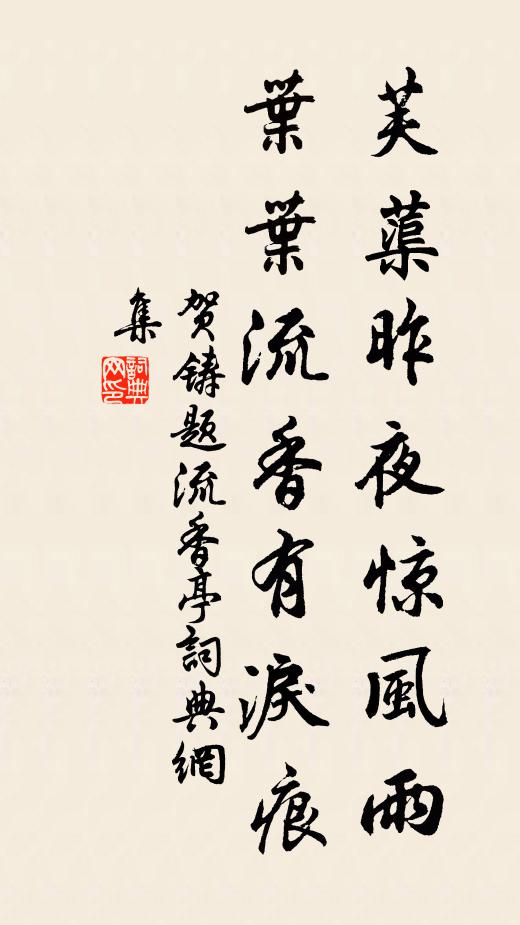 芙蕖昨夜惊風雨
葉葉流香有淚痕
贺鑄題流香亭詞典網
集
詞典网印